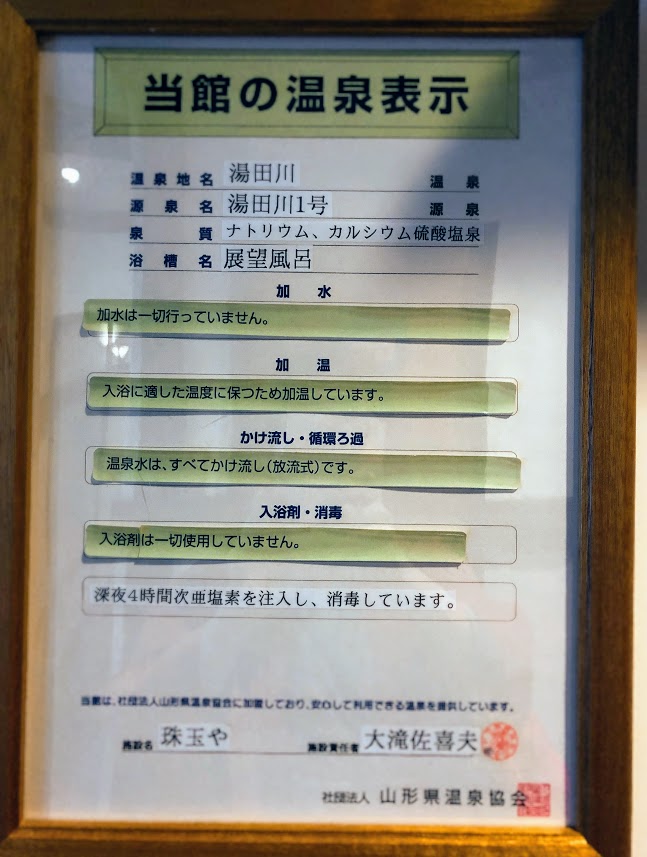 当館の温泉表示
温泉地名 湯田川 温泉
源泉名 湯田川1号 源泉
泉質 ナトリウム、カルシウム硫酸塩泉
浴槽名 展望風呂
加水
加水は一切行っていません。
加温
入浴に適した温度に保つため加温しています。
かけ流し・循環ろ過
温泉水は、すべてかけ流し(放流式)です。
入浴剤・消毒
入浴剤は一切使用していません。
深夜4時間次亜塩素を注入し、消毒しています。
当館は、社団法人山形県温泉協会に加盟しており、安心して利用できる温泉を提供しています。
施設名 珠玉や 施設責任者 大滝佐喜夫
社団法人 山形県温泉協会